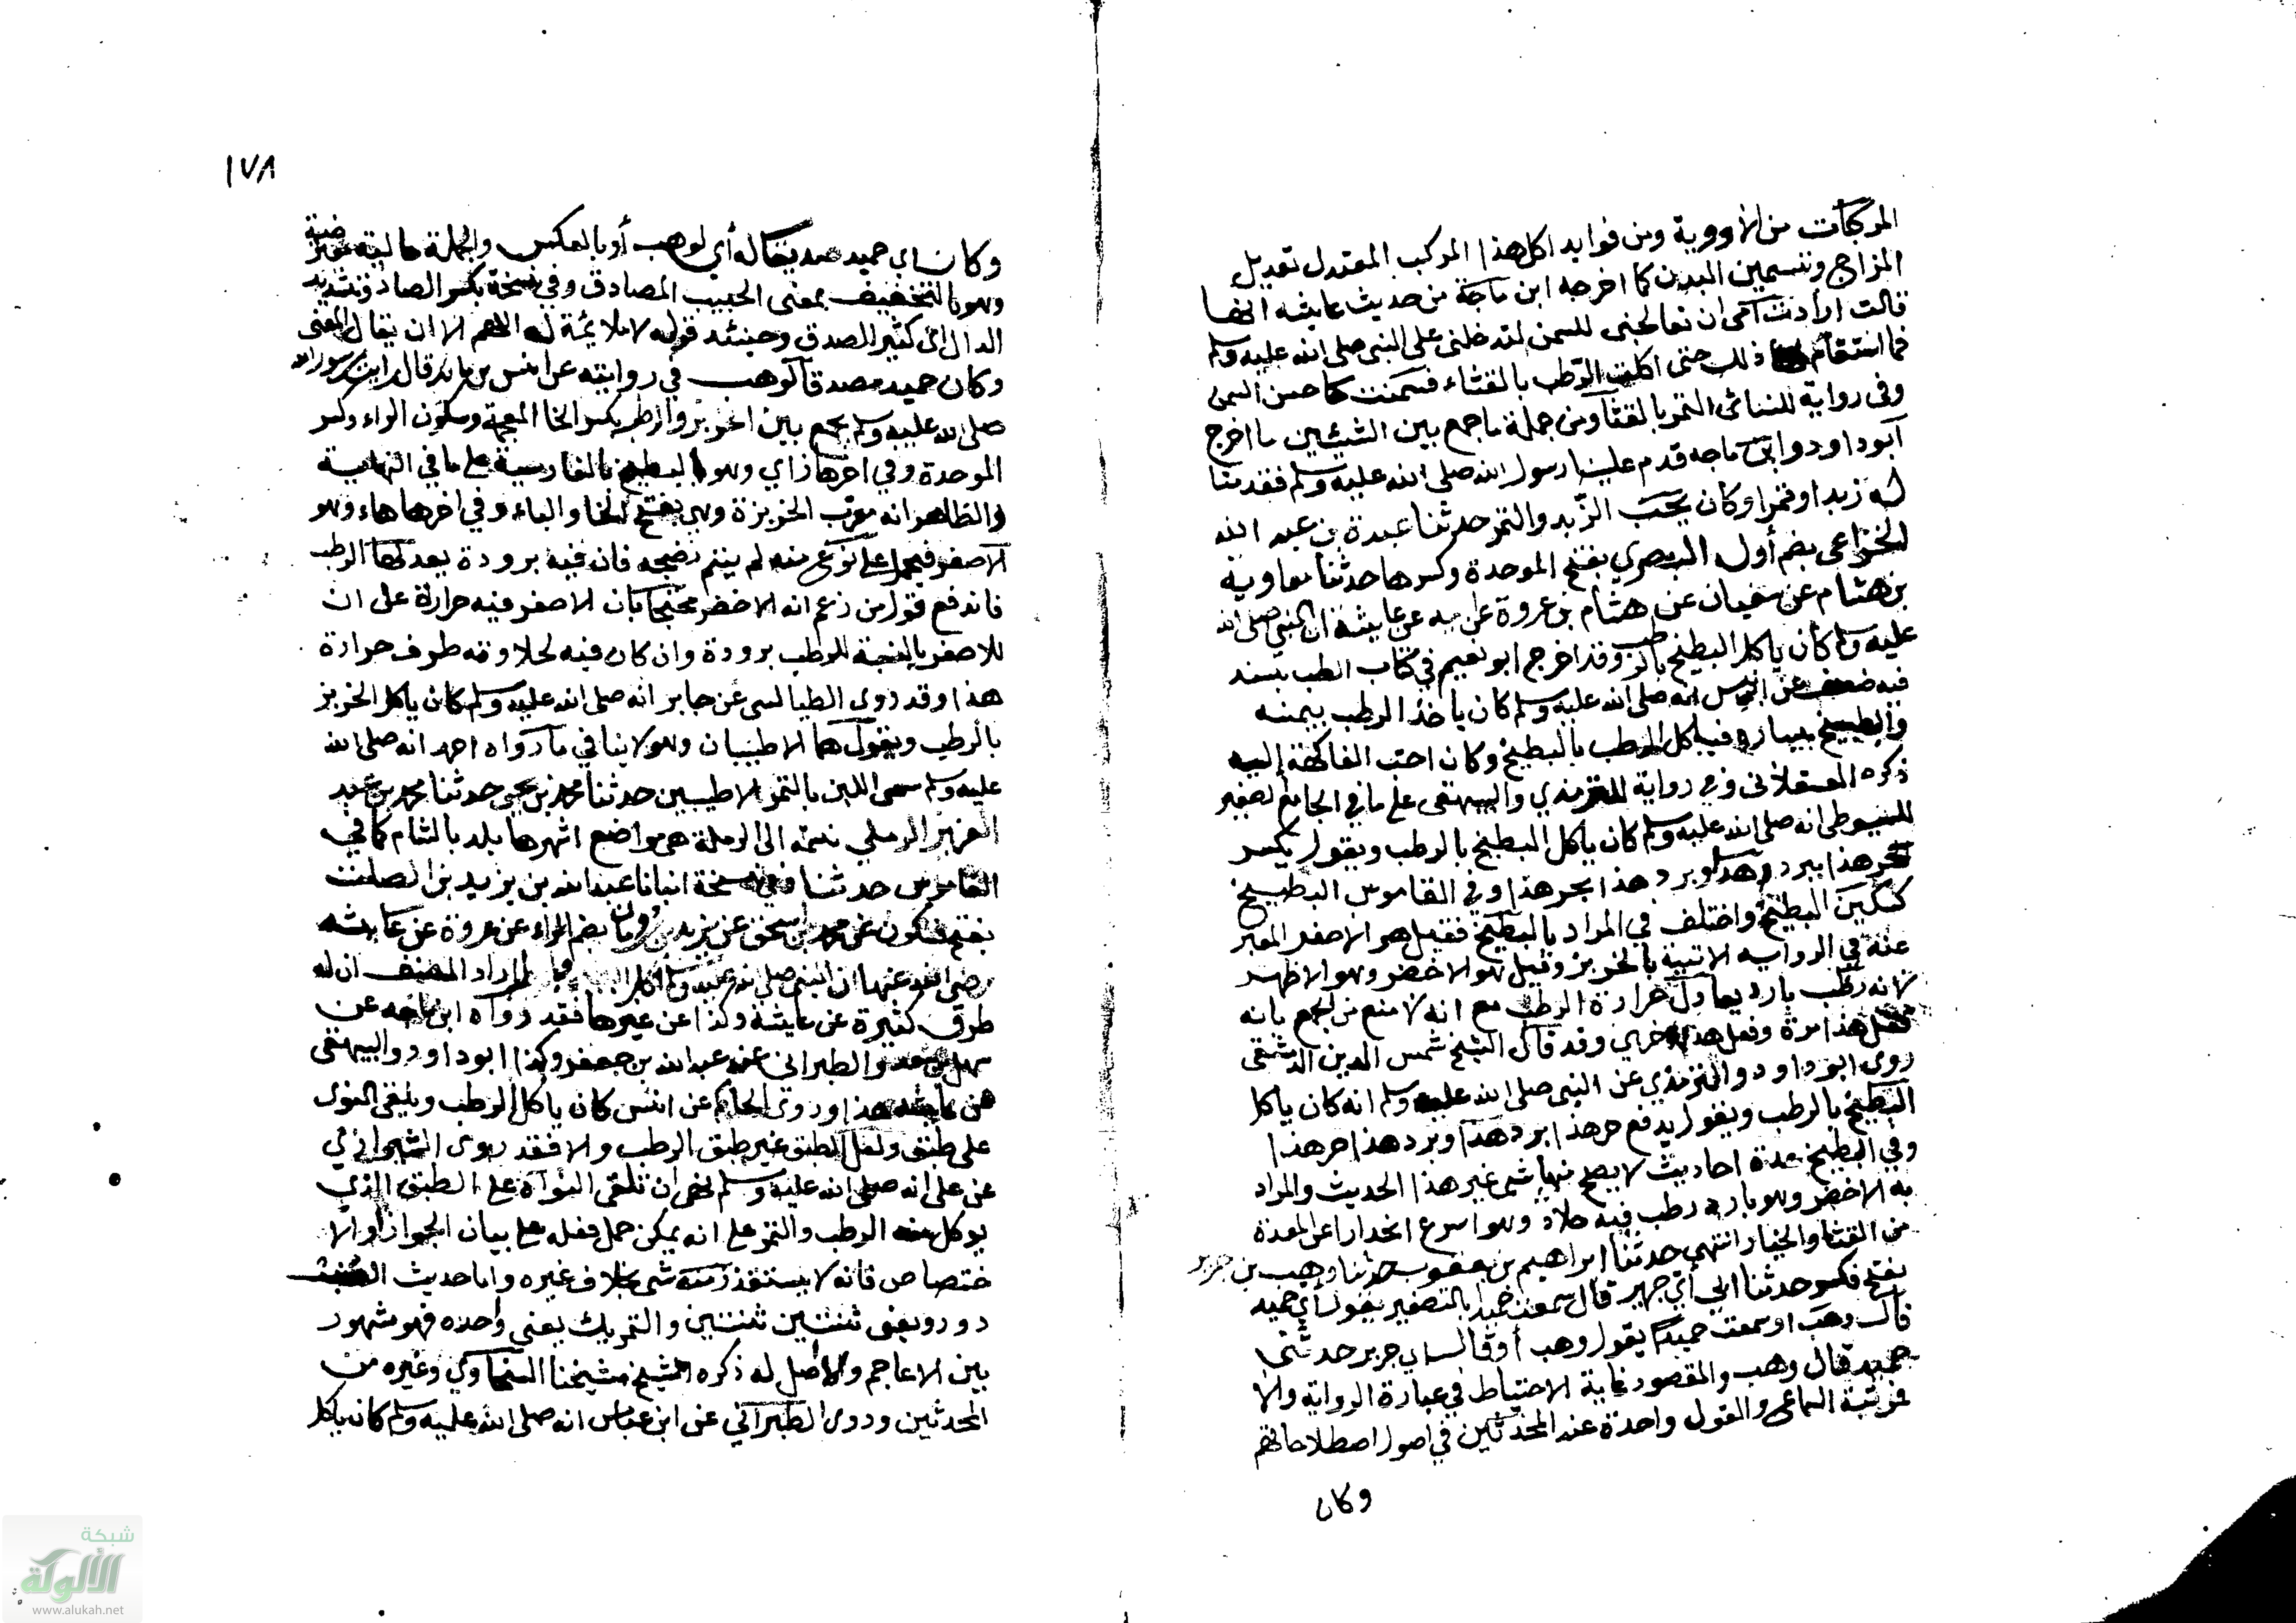 المركبات من الأدوية ومن فوايد اكل هذا المركب المعتدل تعديل
المزاج وتسمين البدن كما اخرجه ابن ماجة من حديث عايشه انها
قالت ارادت امي ان تعالجني للسمن لتدخلني على النبي صلى الله عليه وسلم
فما استقام ذلك حتى اكلت الرطب بالقثاء فسمنت كاحسن السمن
وفي رواية للنسائي التمر بالقثا ومن جملة ما جمع بين الشيئين ما اخرج
أبو داود وابن ماجه قدم علينا رسول الله صلى الله عليه وسلم فقدمنا
له زبدا وتمرا وكان يحب الزبد والتمر حدثنا عبدة بن عبد الله
الخزاعي بضم أول البصري بفتح الموحدة وكسرها حدثنا معاوية
بن هشام عن سفيان عن هشام بن عروة عن ابيه عن عايشة ان النبي صلى الله
عليه وسلم كان ياكل البطيخ بالرطب وقد اخرج ابو نعيم في كتاب الطب بسند
فيه ضعف عن انس انه صلى الله عليه وسلم كان ياخذ الرطب بيمينه
والبطيخ بيساره فياكل الرطب بالبطيخ وكان احب الفاكهة إليه
ذكره العسقلاني وفي رواية للترمذي والبيهقي على ما في الجامع الصغير
للسيوطي انه صلى الله عليه وسلم كان ياكل البطيخ بالرطب ويقول يكسر
حر هذا ببرد هذا وبرد هذا بحر هذا وفي القاموس البطيخ
كسكين البطيخ واختلف في المراد بالبطيخ فقيل هو الاصفر المعبر
عنه في الرواية الاتية بالخربز وقيل هو الاخضر وهو الاظهر
لانه رطب بارد يعادل حرارة الرطب مع انه لا منع من الجمع بانه
فعل هذا مرة وفعل هذا اخرى وقد قال الشيخ شمس الدين الدمشقي
روى ابو داود والترمذي عن النبي صلى الله عليه وسلم انه كان ياكل
البطيخ بالرطب ويقول يدفع حر هذا برد هذا وبرد هذا حر هذا
وفي البطيخ عدة احاديث لا يصح منها شي غير هذا الحديث والمراد
به الاخضر وهو بارد رطب فيه جلاء وهو اسرع انحدارا عن المعدة
من القثا والخيار انتهى حدثنا ابراهيم بن يعقوب حدثنا وهب بن جرير
بفتح فكسر حدثنا ابي أي جرير قال سمعت حميدا بالتصغير يقول أي حميد
قال وهب او سمعت حميدا يقول وهب أو قال اي جرير حدثني
حميد قال وهب والمقصود غاية الاحتياط في عبارة الرواية والا
فمرتبة السماع والقول واحدة عند المحدثين في اصول اصطلاحاتهم
وكان
١٧٨
وكان اي حميد صديقا له أي لوهب أو بالعكس والجملة حالية معترضة
وهو بالتخفيف بمعنى الحبيب المصادق وفي نسخة بكسر الصاد وتشديد
الدال اي كثير الصدق وحينئد قوله له لا يلائمه اللهم الا ان يقال المعنى
وكان حميد مصدقا لوهب في روايته عن انس بن مالك قال رايت رسول الله
صلى الله عليه وسلم يجمع بين الخربز والرطب بكسر الخا المعجمة وسكون الراء وكسر
الموحدة وفي اخرها زاي وهو البطيخ بالفارسية على ما في النهاية
والظاهر انه معرب الخربزة وهي بفتح الخا والباء وفي اخرها هاء وهو
الاصفر فيحمل على نوع منه لم يتم نضجه فان فيه برودة يعدلها الرطب
فاندفع قول من زعم انه الاخضر محتجا بان الاصفر فيه حرارة على ان
للاصفر بالنسبة للرطب برودة وان كان فيه لحلاوته طرف حرارة
هذا وقد روى الطيالسي عن جابر انه صلى الله عليه وسلم كان ياكل الخربز
بالرطب ويقول هما الاطيبان وهو لا ينافي ما رواه احمد انه صلى الله
عليه وسلم سمى اللبن بالتمر الاطيبين حدثنا محمد بن يحيى حدثنا محمد بن عبد
العزيز الرملي نسبة الى الرملة هي مواضع اشهرها بلد بالشام كما في
القاموس حدثنا وفي نسخة انبانا عبد الله بن يزيد بن الصلت
بفتح فسكون عن محمد بن اسحق عن يزيد بن رومان بضم الراء عن عروة عن عايشه
رضي الله عنها ان النبي صلى الله عليه وسلم اكل المراد المصنف ان له
طرق كثيرة عن عايشة وكذا عن غيرها فقد رواه ابن ماجه عن
سهل بن سعد والطبراني عن عبد الله بن جعفر وكذا ابو داود والبيهقي
عن عايشه هذا وروى الحاكم عن انس كان ياكل الرطب ويلقي النوى
على طبق ولعل الطبق غير طبق الرطب والا فقد روى الشيرازي
عن علي انه صلى الله عليه وسلم نهى ان تلقى النواة على الطبق الذي
يوكل منه الرطب والتمر على انه يمكن حمل فعله على بيان الجواز او الا
ختصاص فانه لا يستقذر منه شي بخلاف غيره واما حديث العنب
دو دو يعني ثنتين ثنتين والتمر يك يعني واحده فهو مشهور
بين الاعاجم ولا اصل له ذكره شيخ مشيخنا السخاوي وغيره من
المحدثين وروى الطبراني عن ابن عباس انه صلى الله عليه وسلم كان ياكل
شبكة
الألوكة
www.alukah.net